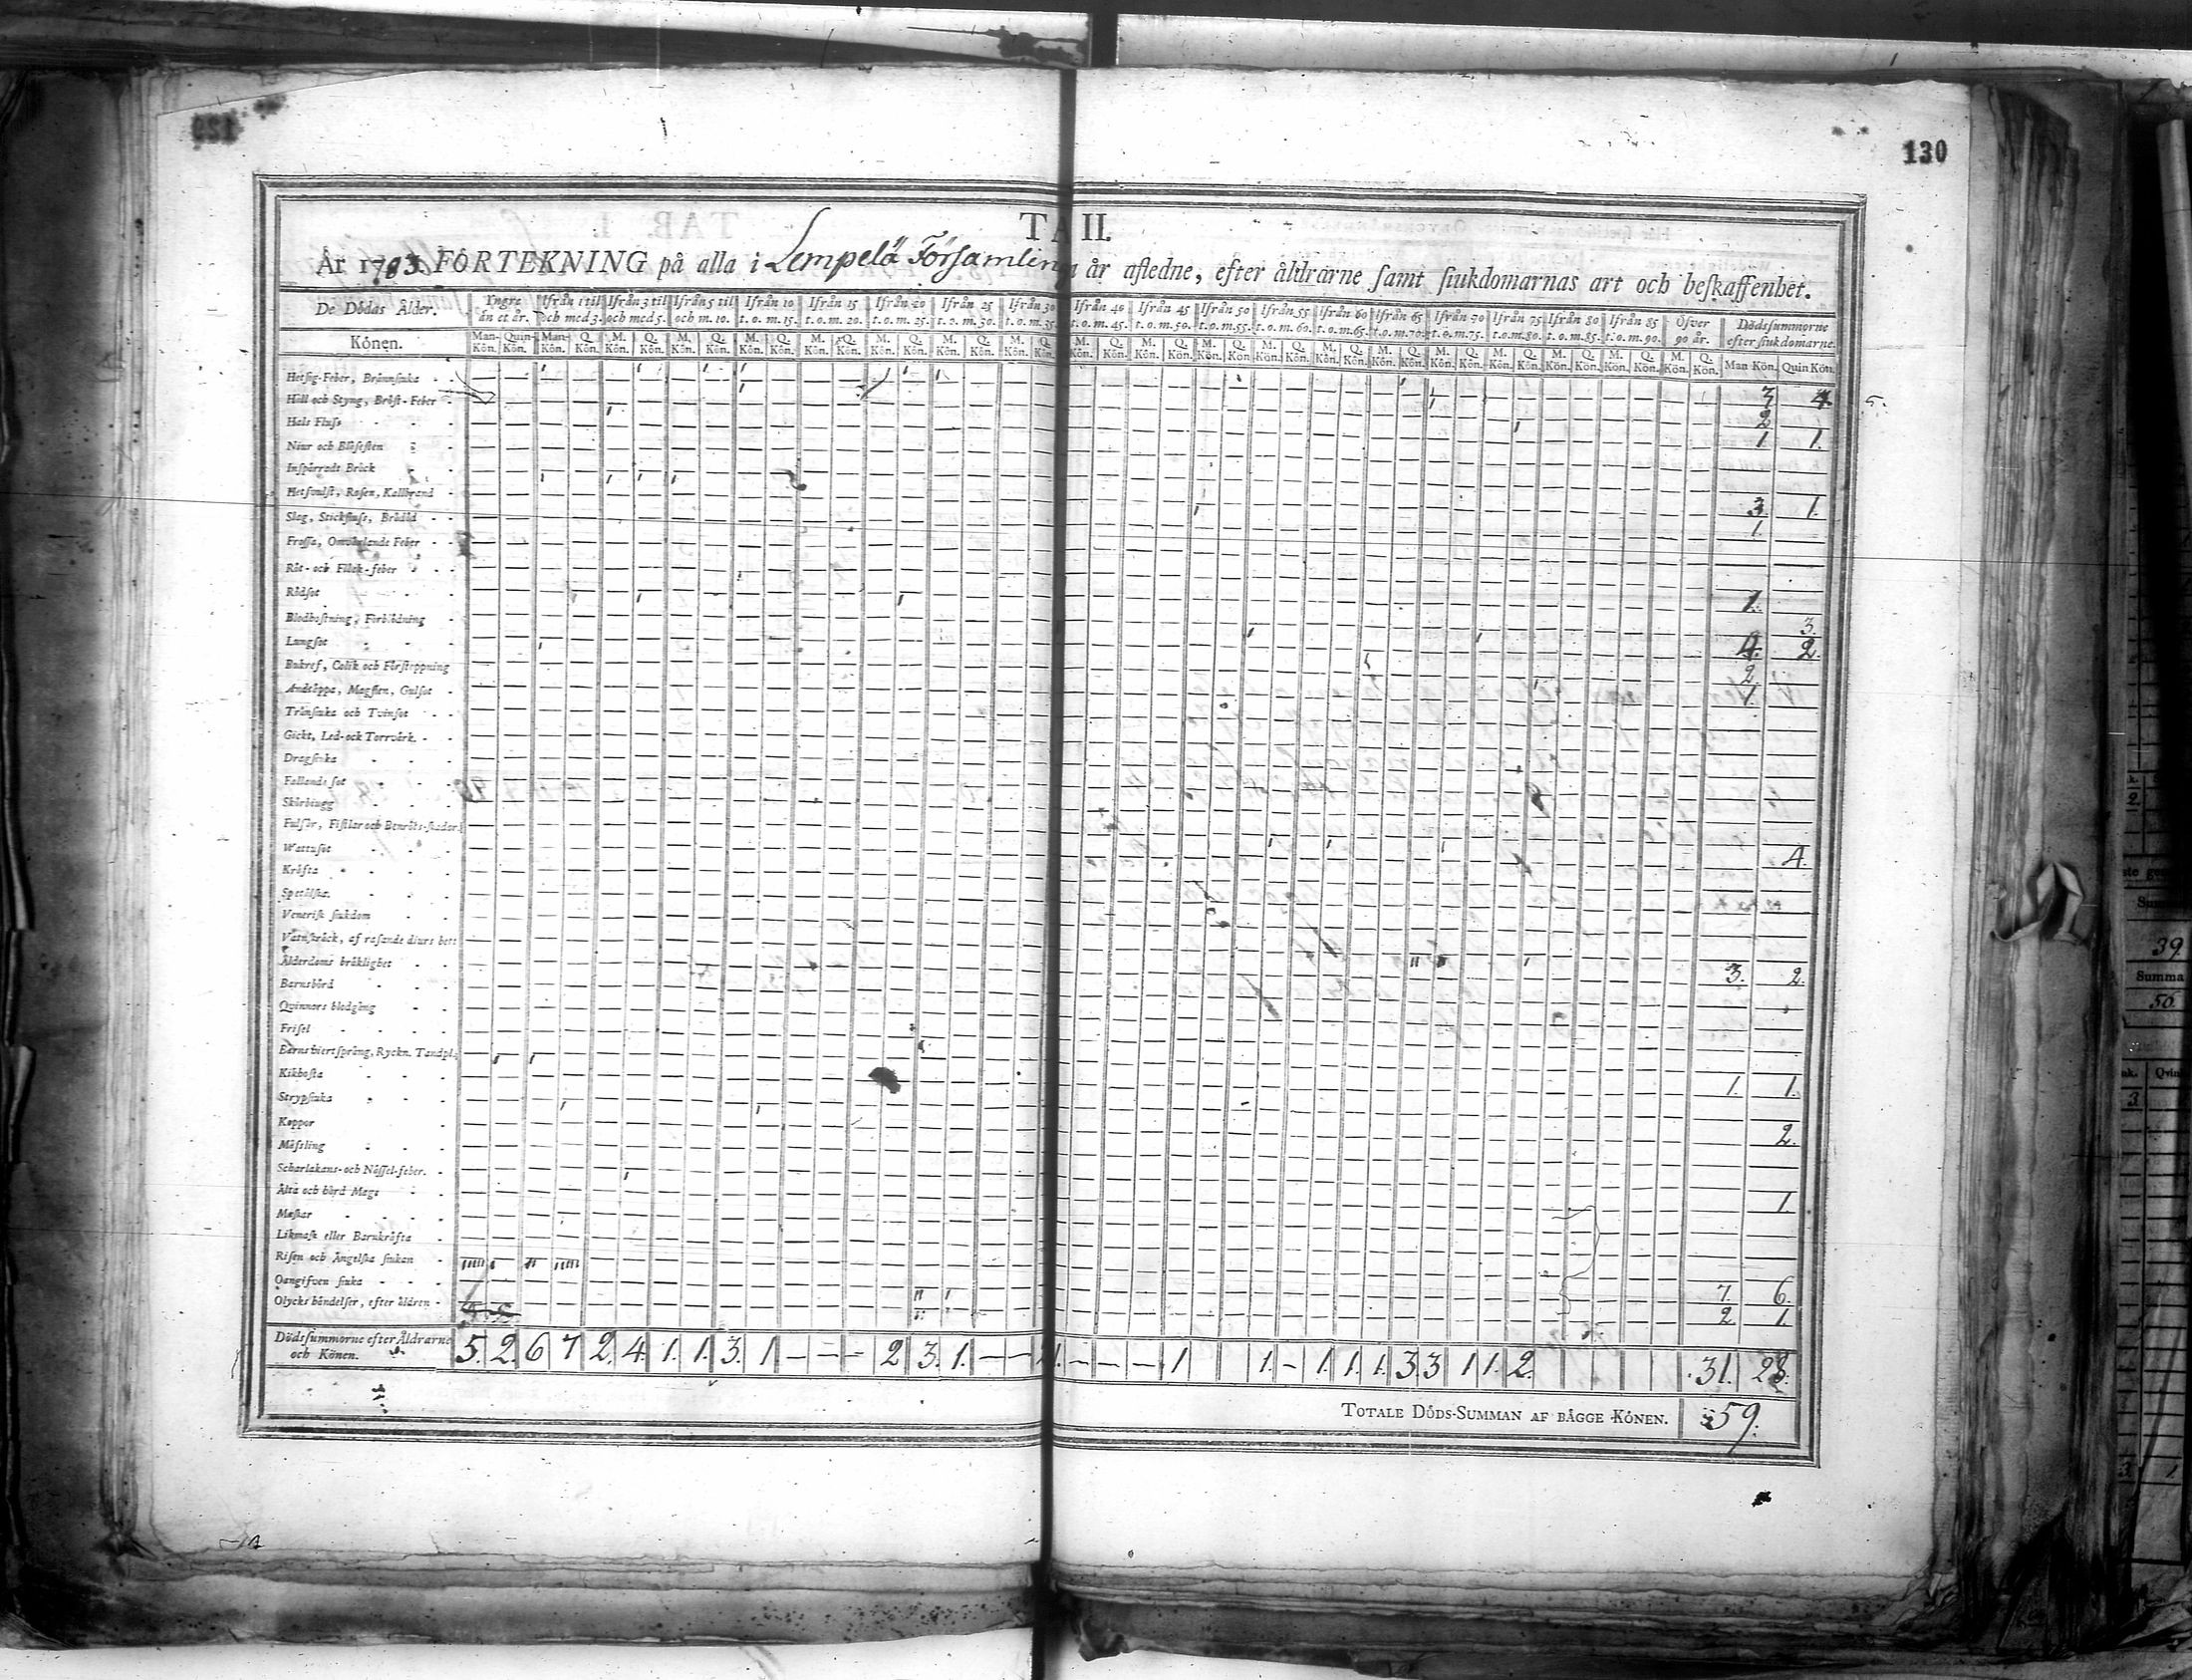 130
TA II.
År 1783. FÖRTEKNING på alla i Lempelä Församling år afledne, efter åldrarne samt siukdomarnas art och beskaffenhet.
De Dödas Ålder. Yngre än et år. Ifrån 1 til och med 3. Ifrån 3 til och med 5. Ifrån 5 til och m. 10. Ifrån 10 t.o.m. 15. Ifrån 15 t.o.m. 20. Ifrån 20 t.o.m. 25. Ifrån 25 t.o.m. 30. Ifrån 30 t.o.m. 35. Ifrån 40 t.o.m. 45. Ifrån 45 t.o.m. 50. Ifrån 50 t.o.m. 55. Ifrån 55 t.o.m. 60. Ifrån 60 t.o.m. 65. Ifrån 65 t.o.m. 70. Ifrån 70 t.o.m. 75. Ifrån 75 t.o.m. 80. Ifrån 80 t.o.m. 85. Ifrån 85 t.o.m. 90. Öfver 90 år. Dödssummorne efter siukdomarne.
Könen. Man-Kön. Quin-Kön. Man-Kön. Q. Kön. M. Kön. Q. Kön. M. Kön. Q. Kön. M. Kön. Q. Kön. Man Kön. Quin Kön.
Hetsig-Feber, Brännsiuka 3 4.
Håll och Styng, Bröst-Feber 2
Hals Fluss 1 1.
Niur och Blåsesten
Inspärradt Bråck
Hetsvulst, Rosen, Kallbrand 3. 1.
Slag, Stickfluss, Brådöd 1.
Frossa, Omväxlande Feber
Röt- och Fläck-feber
Rödsot 1.
Blodhostning, Förblödning 3.
Lungsot 4. 2.
Bukref, Colik och Förstoppning 2.
Andtäppa, Magsten, Gulsot 1.
Trånsiuka och Tvinsot
Gickt, Led-och Torrvärk
Dragsiuka
Fallande sot
Skörbiugg
Fulsår, Fistlar och Benröts-skador
Wattusot 4.
Kräfta
Spetälska
Venerisk siukdom
Vatuskräck, af rasande diurs bett
Ålderdoms bräklighet 3. 2.
Barnsbörd
Qvinnors blodgång
Frisel
Barns hiertsprång, Ryckn. Tandpl.
Kikhosta 1. 1.
Strypsiuka
Koppor 2.
Mässling
Scharlakans- och Nässel-feber.
Älta och hård Mage 1
Maskar
Likmask eller Barnkräfta
Risen och Ängelska siukan
Oangifven siuka 7. 6.
Olycks händelser, efter åldren 2 1.
Dödssummorne efter Åldrarne och Könen. 5. 2. 6 7 2. 4. 1. 1. 3. 1 — — — 2 3. 1. — — 1. — — — 1 1. — 1 1. 1. 3 3 1 1. 2. 31. 28.
TOTALE DÖDS-SUMMAN AF BÅGGE KÖNEN. 59.
39.
Summa
56.